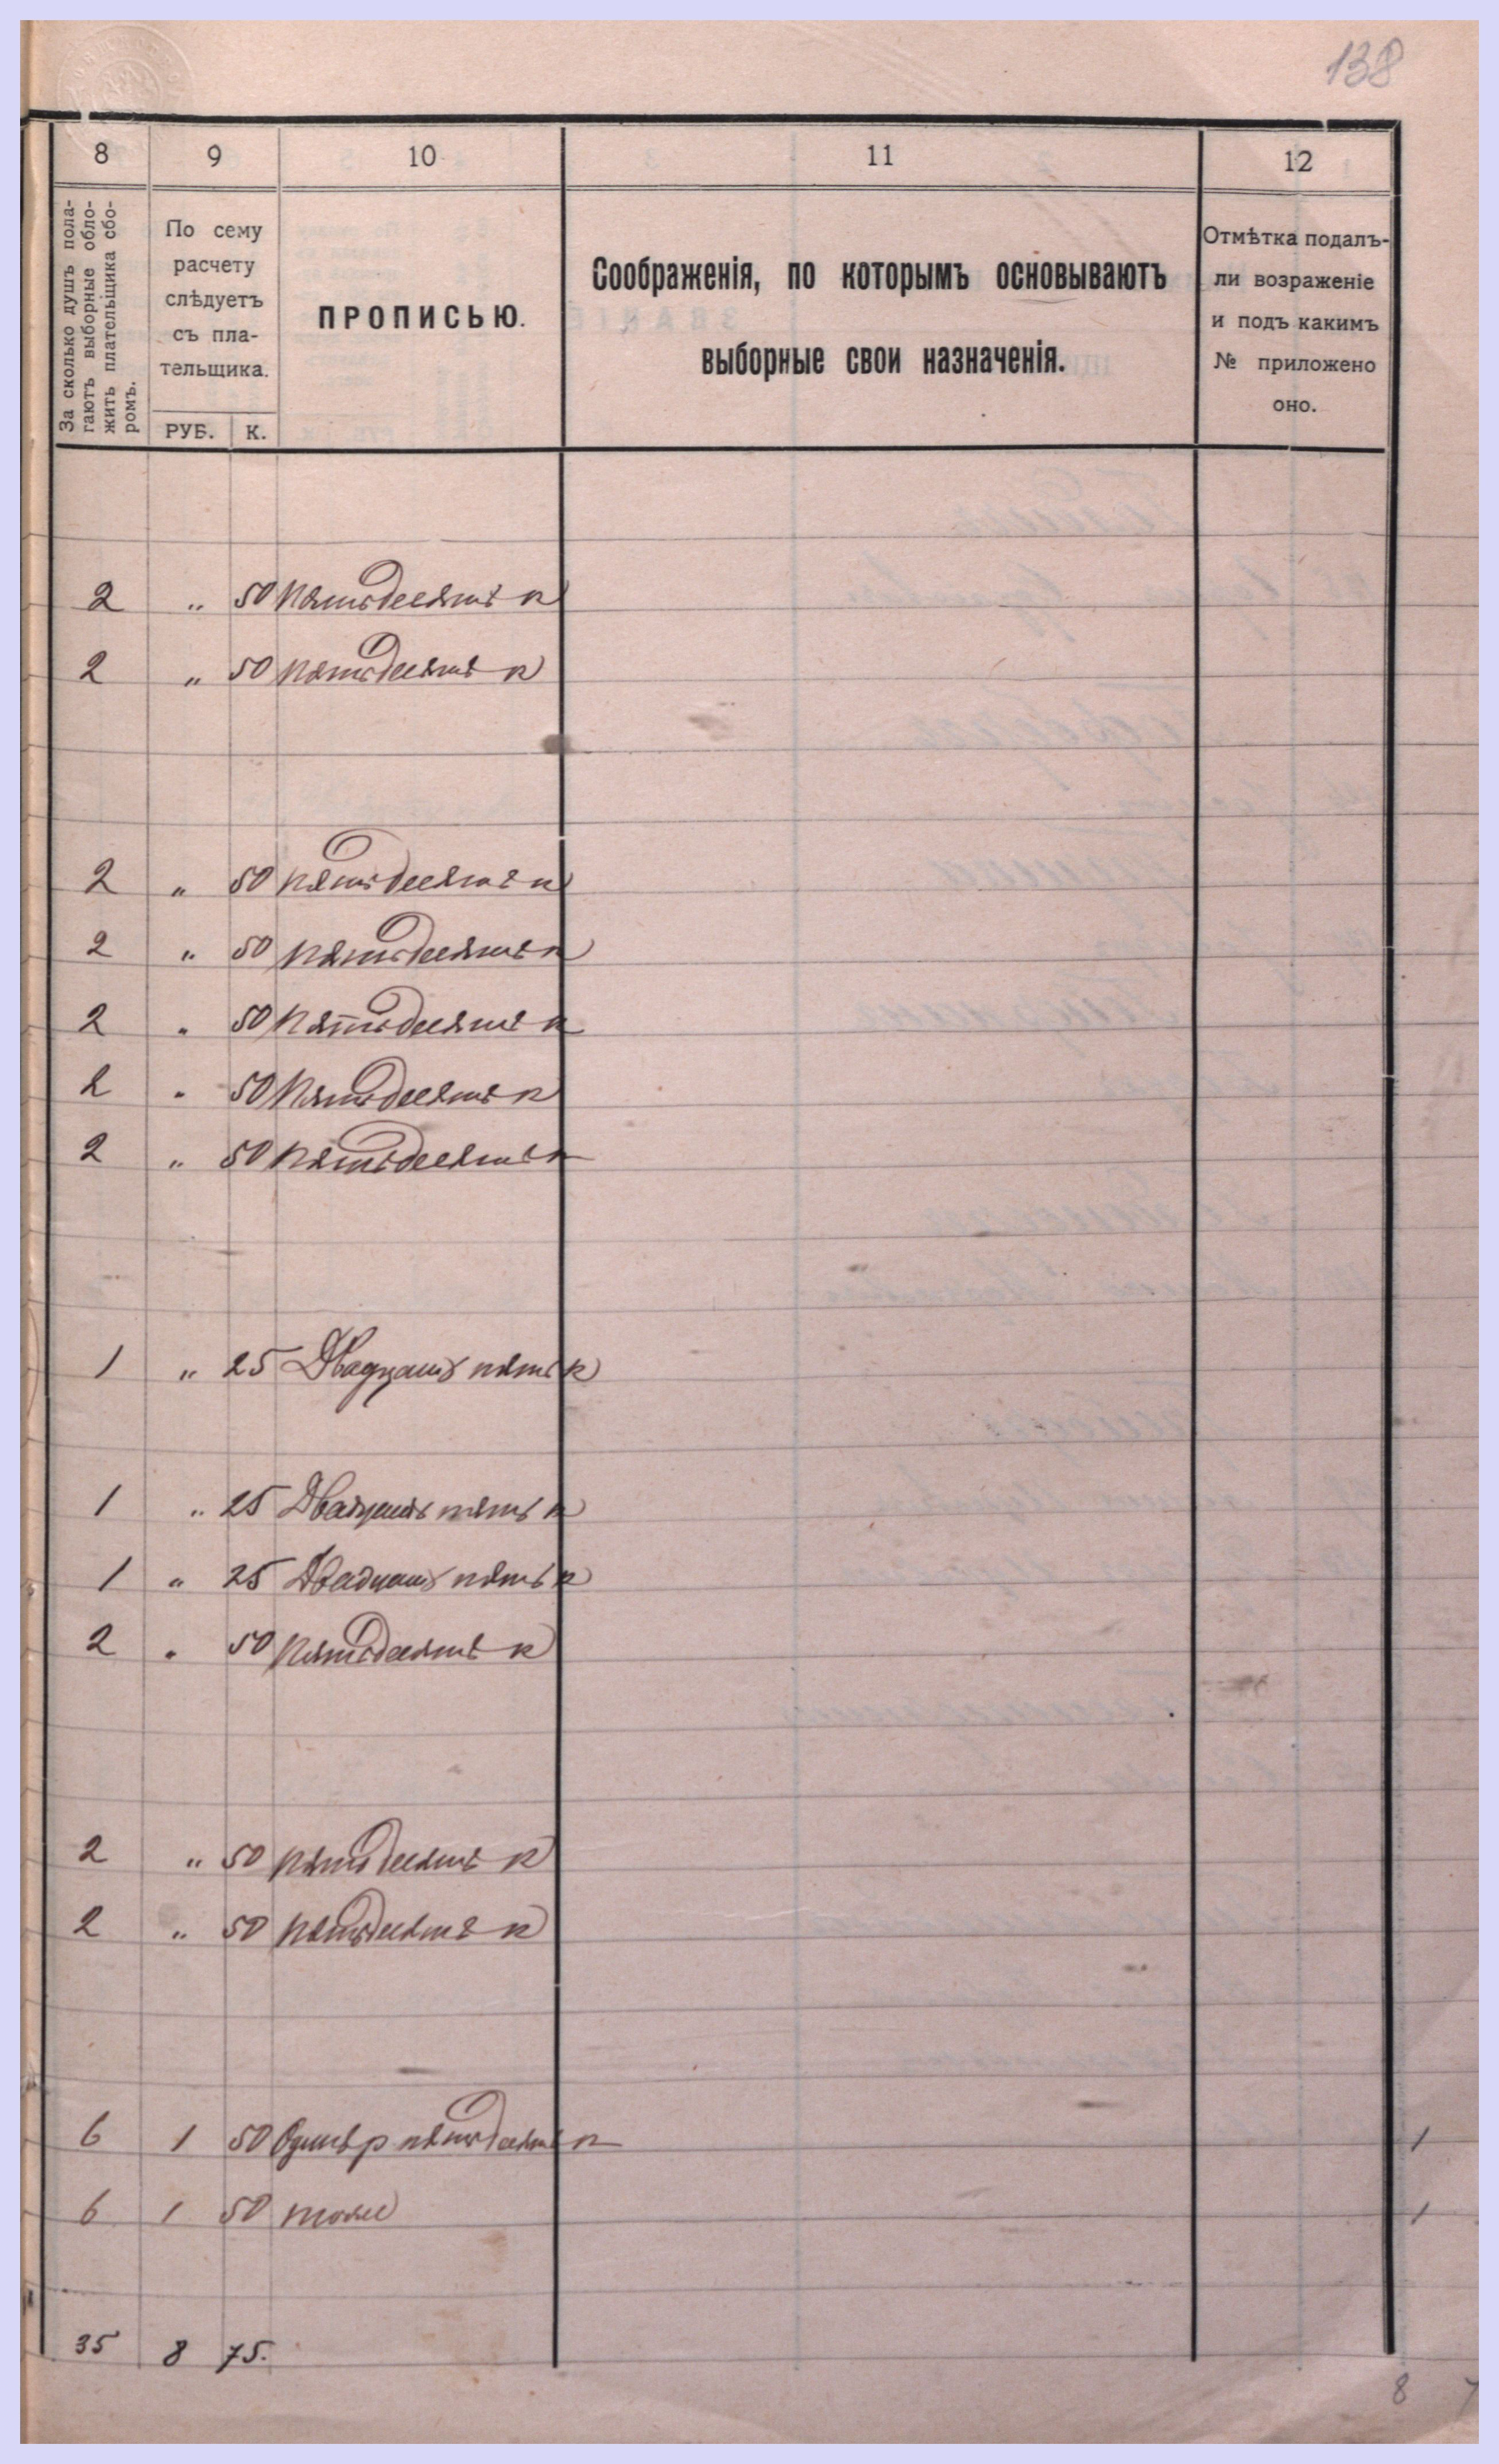 138
8 9 10 11 12
За сколько душъ пола-
гаютъ выборные обло-
жить плательщика сбо-
ромъ.
По сему
расчету
слѣдуетъ
съ пла-
тельщика.
РУБ. К.
ПРОПИСЬЮ.
Соображенія, по которымъ основываютъ
выборные свои назначенія.
Отмѣтка подалъ-
ли возраженіе
и подъ какимъ
№ приложено
оно.
2 „ 50 Пятьдесятъ к
2 „ 50 Пятьдесятъ к
2 „ 50 Пятьдесятъ к
2 „ 50 Пятьдесятъ к
2 „ 50 Пятьдесятъ к
2 „ 50 Пятьдесятъ к
2 „ 50 Пятьдесятъ к
1 „ 25 Двадцать пять к
1 „ 25 Двадцать пять к
1 „ 25 Двадцать пять к
2 „ 50 Пятьдесятъ к
2 „ 50 Пятьдесятъ к
2 „ 50 Пятьдесятъ к
6 1 50 Одинъ р пятьдесятъ к 1
6 1 50 тоже 1
35 8 75.
8 7